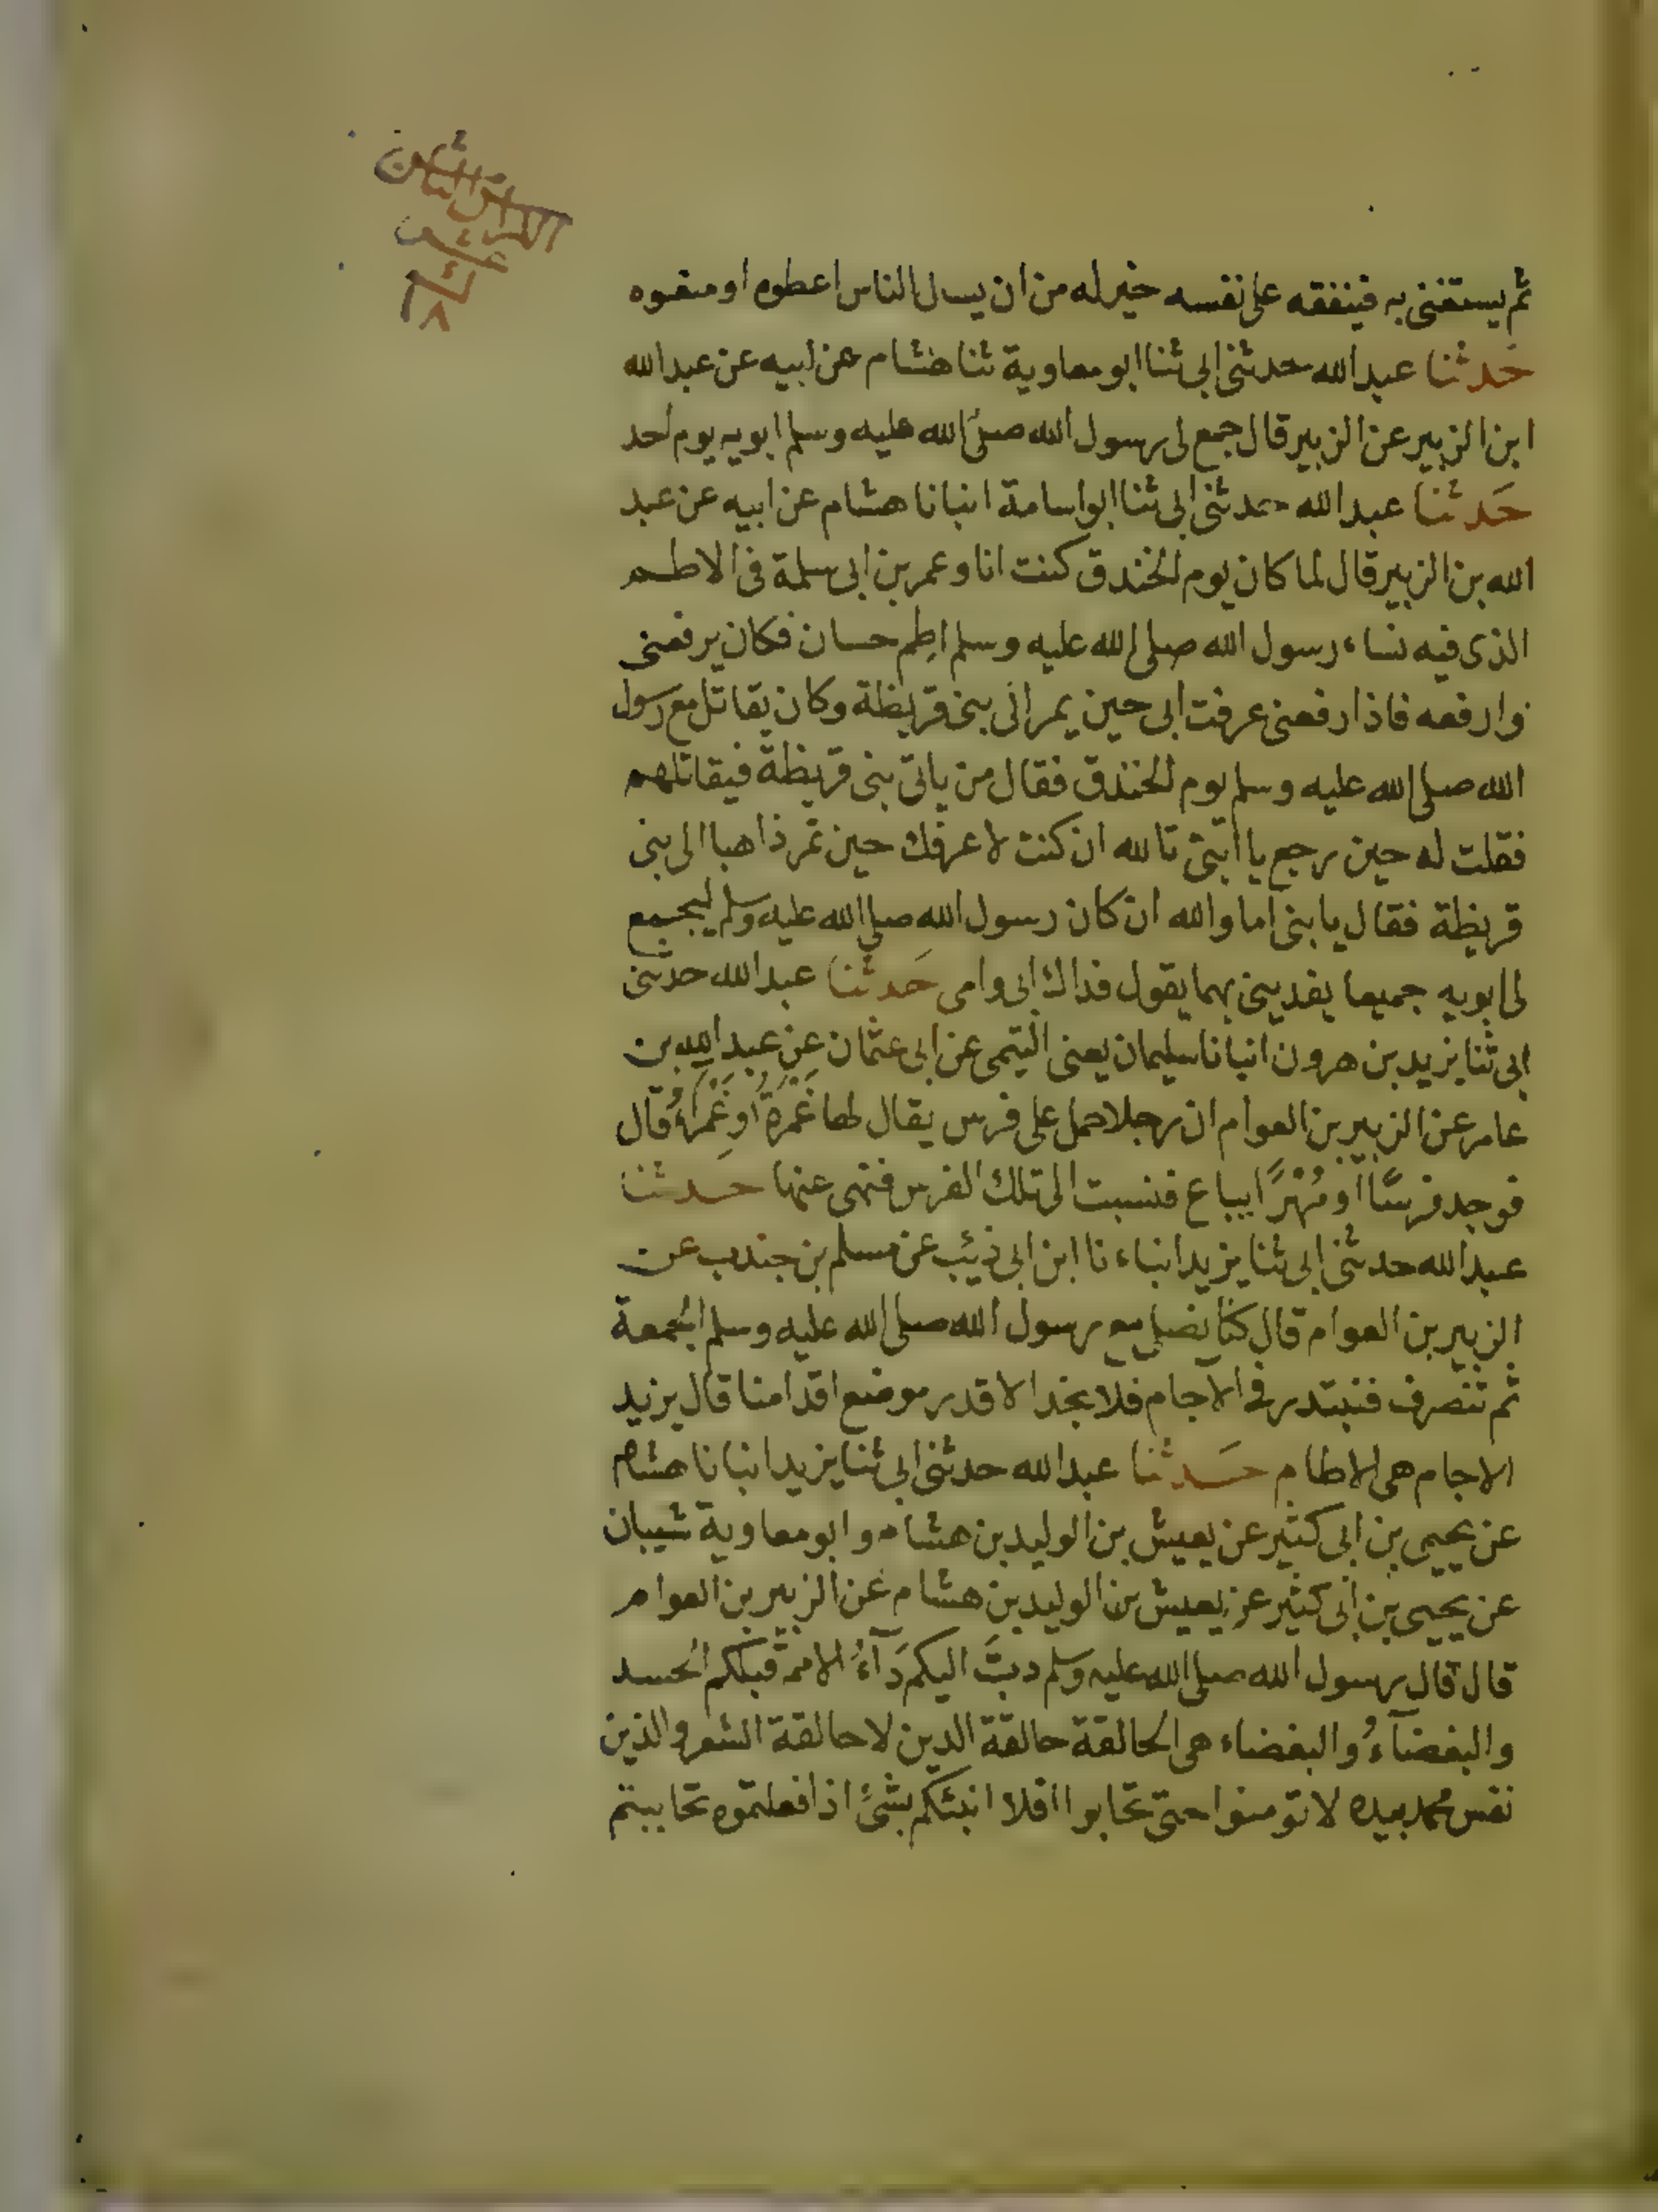 الكراس الثامن
عشر
١٨
ثم يستغنى به فينفقه على نفسه خير له من ان يسل الناس اعطوه او منعوه
حَدثنا عبد الله حدثنى ابى ثنا ابو معاوية ثنا هشام عن ابيه عن عبد الله
ابن الزبير عن الزبير قال جمع لى رسول الله صلى الله عليه وسلم ابويه يوم احد
حَدثنا عبد الله حدثنى ابى ثنا ابو اسامة انبانا هشام عن ابيه عن عبد
الله بن الزبير قال لما كان يوم الخندق كنت انا وعمر بن ابى سلمة فى الاطم
الذى فيه نساء رسول الله صلى الله عليه وسلم اطم حسان فكان يرفعنى
وارفعه فاذا رفعنى عرفت ابى حين يمر الى بنى قريظة وكان يقاتل مع رسول
الله صلى الله عليه وسلم يوم الخندق فقال من ياتى بنى قريظة فيقاتلهم
فقلت له حين رجع يا ابتى تالله ان كنت لاعرفك حين تمر ذاهبا الى بنى
قريظة فقال يا بنى اما والله ان كان رسول الله صلى الله عليه وسلم ليجمع
لى ابويه جميعا يفدينى بهما يقول فداك ابى وامى حَدثنا عبد الله حدثنى
ابى ثنا يزيد بن هرون انبانا سليمان يعنى التيمى عن ابى عثمان عن عبد الله بن
عامر عن الزبير بن العوام ان رجلا حمل على فرس يقال لها غَمْرَةُ او غَمْرَاءُ قال
فوجد فرسًا او مُهْرًا يباع فنسبت الى تلك الفرس فنهى عنها حدثنا
عبد الله حدثنى ابى ثنا يزيد انباء نا ابن ابى ذيئب عن مسلم بن جندب عن
الزبير بن العوام قال كنا نصلى مع رسول الله صلى الله عليه وسلم الجُمعة
ثم ننصرف فنبتدر فى الآجام فلا نجد الا قدر موضع اقدامنا قال يزيد
الاجام هى الاطام حَدثنا عبد الله حدثنى ابى ثنا يزيد انبانا هشام
عن يحيى بن ابى كثير عن يعيش بن الوليد بن هشام وابو معاوية شيبان
عن يحيى بن ابى كثير عن يعيش بن الوليد بن هشام عن الزبير بن العوام
قال قال رسول الله صلى الله عليه وسلم دبَّ اليكم دَآءُ الامم قبلكم الحسد
والبغضآءُ والبغضاء هى الحالقة حالقة الدين لا حالقة الشعر والذين
نفس محمد بيده لا تومنوا حتى تحابوا افلا انبئكم بشئً اذا فعلتموه تحاببتم